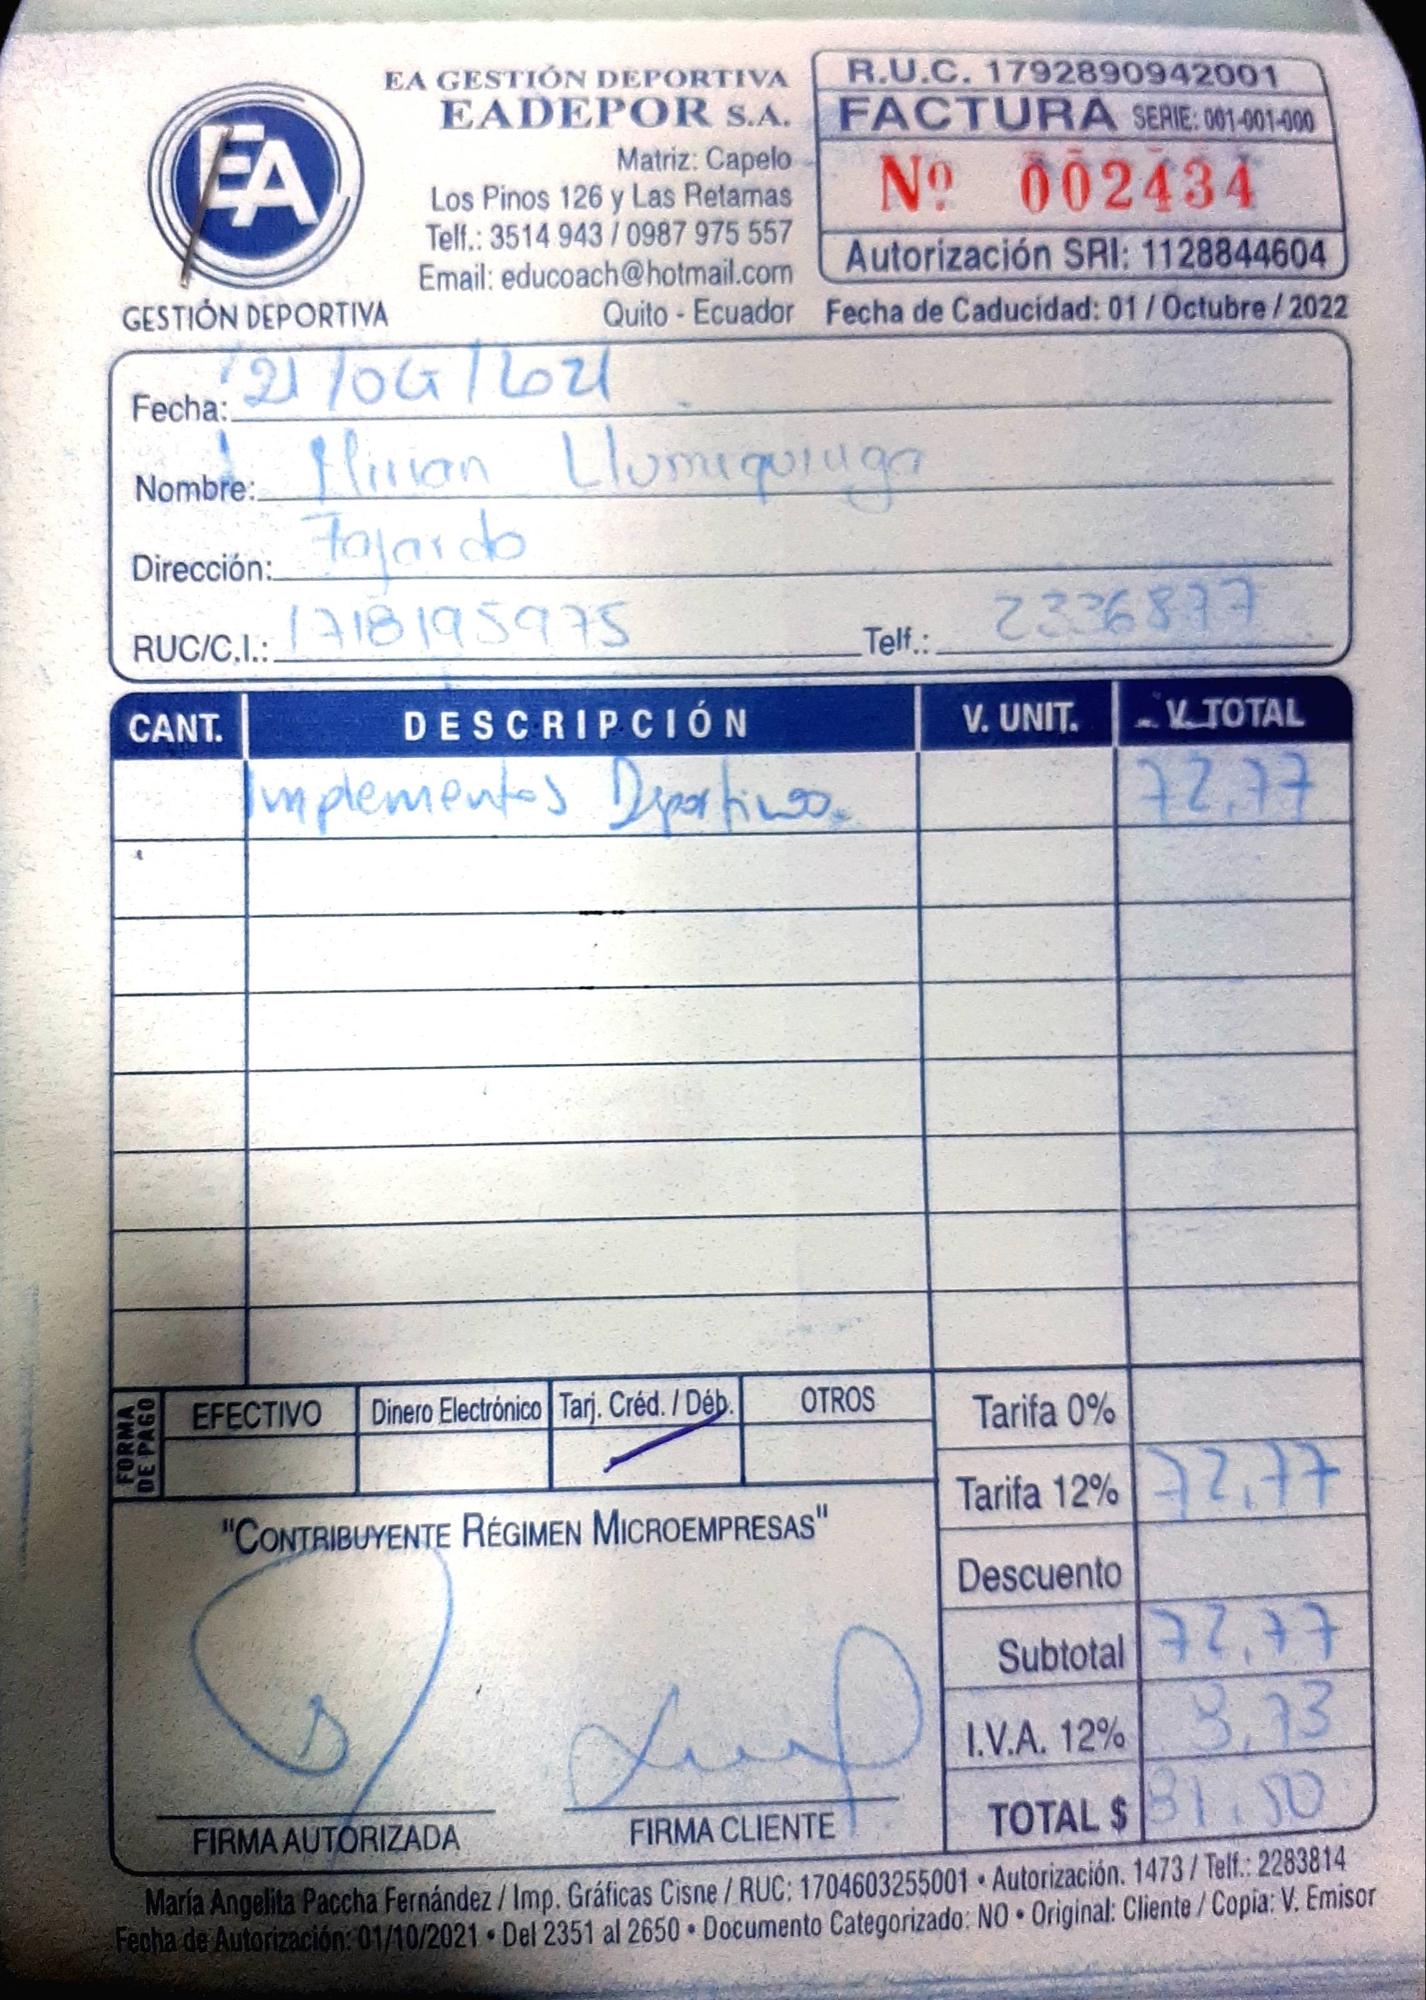 EA
GESTIÓN DEPORTIVA
EA GESTIÓN DEPORTIVA
EADEPOR S.A.
Matriz: Capelo
Los Pinos 126 y Las Retamas
Telf.: 3514 943 / 0987 975 557
Email: educoach@hotmail.com
Quito - Ecuador
R.U.C. 1792890942001
FACTURA SERIE: 001-001-000
Nº 002434
Autorización SRI: 1128844604
Fecha de Caducidad: 01 / Octubre / 2022
Fecha: 21/OCT/2021
Nombre: Mirian Llumiquinga
Dirección: Fajardo
RUC/C.I.: 1718195975 Telf.: 2336877
CANT. DESCRIPCIÓN V. UNIT. V. TOTAL
Implementos Deportivos. 72,77
FORMA DE PAGO
EFECTIVO Dinero Electrónico Tarj. Créd. / Déb. OTROS
Tarifa 0%
Tarifa 12% 72,77
"CONTRIBUYENTE RÉGIMEN MICROEMPRESAS"
Descuento
Subtotal 72,77
I.V.A. 12% 8,73
TOTAL $ 81,50
FIRMA AUTORIZADA FIRMA CLIENTE
María Angelita Paccha Fernández / Imp. Gráficas Cisne / RUC: 1704603255001 • Autorización. 1473 / Telf.: 2283814
Fecha de Autorización: 01/10/2021 • Del 2351 al 2650 • Documento Categorizado: NO • Original: Cliente / Copia: V. Emisor